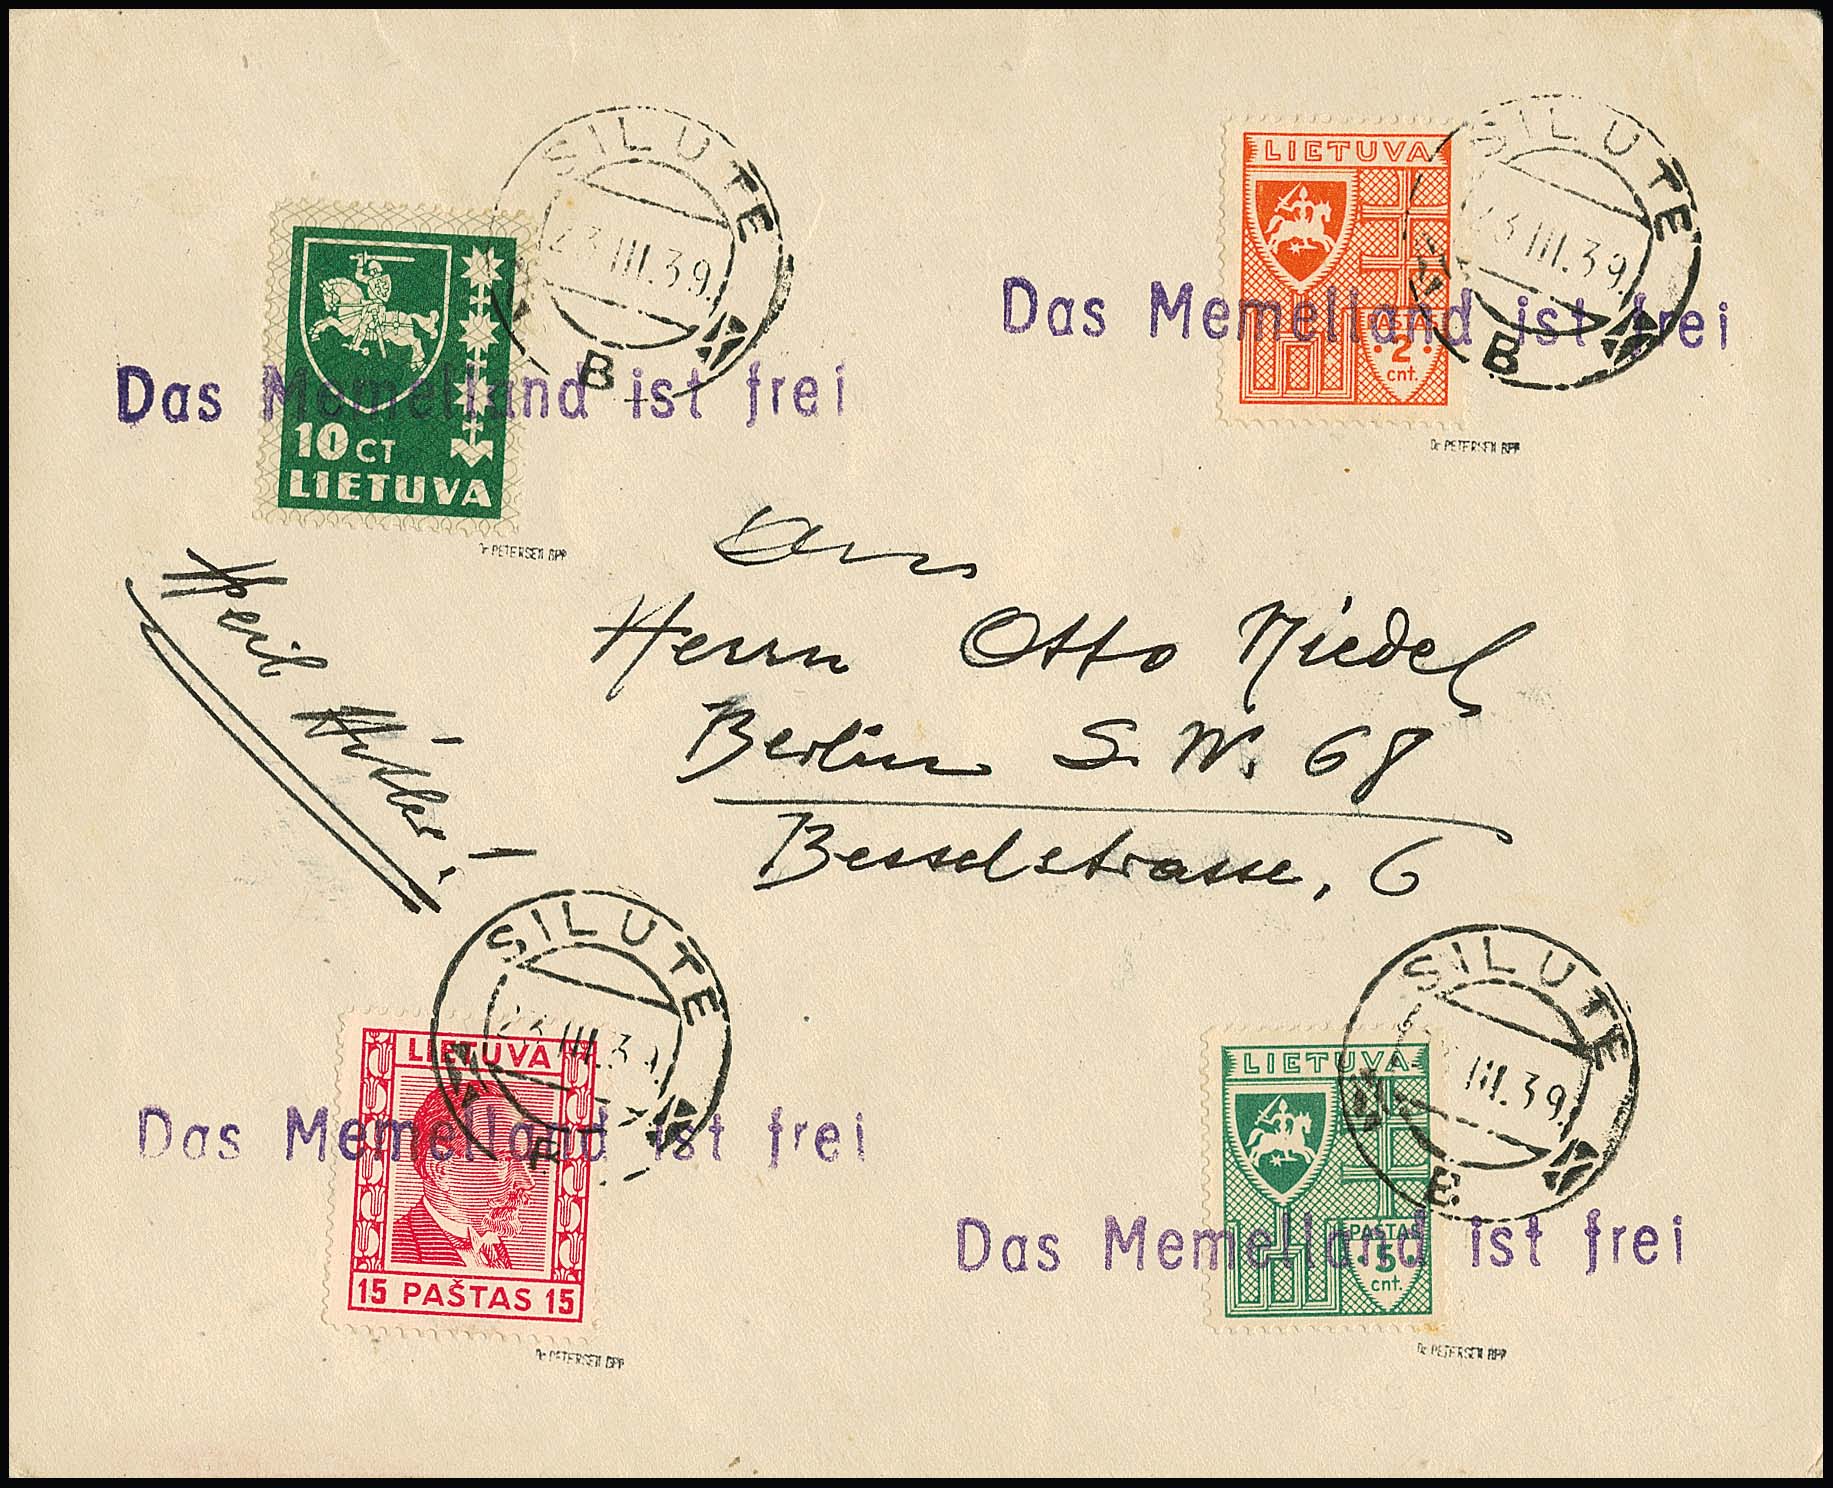 SILUTE
23.III.39.
B
10 CT
LIETUVA
Das Memelland ist frei
Dr PETERSEN BPP
SILUTE
23.III.39.
B
LIETUVA
PAŠTAS
2
cnt.
Das Memelland ist frei
Dr PETERSEN BPP
Heil Hitler!
An
Herrn Otto Riedel
Berlin S.W. 68
Besselstrasse, 6
SILUTE
23.III.39.
LIETUVA
15 PAŠTAS 15
Das Memelland ist frei
Dr PETERSEN BPP
SILUTE
III.39.
B
LIETUVA
PAŠTAS
5
cnt.
Das Memelland ist frei
Dr PETERSEN BPP